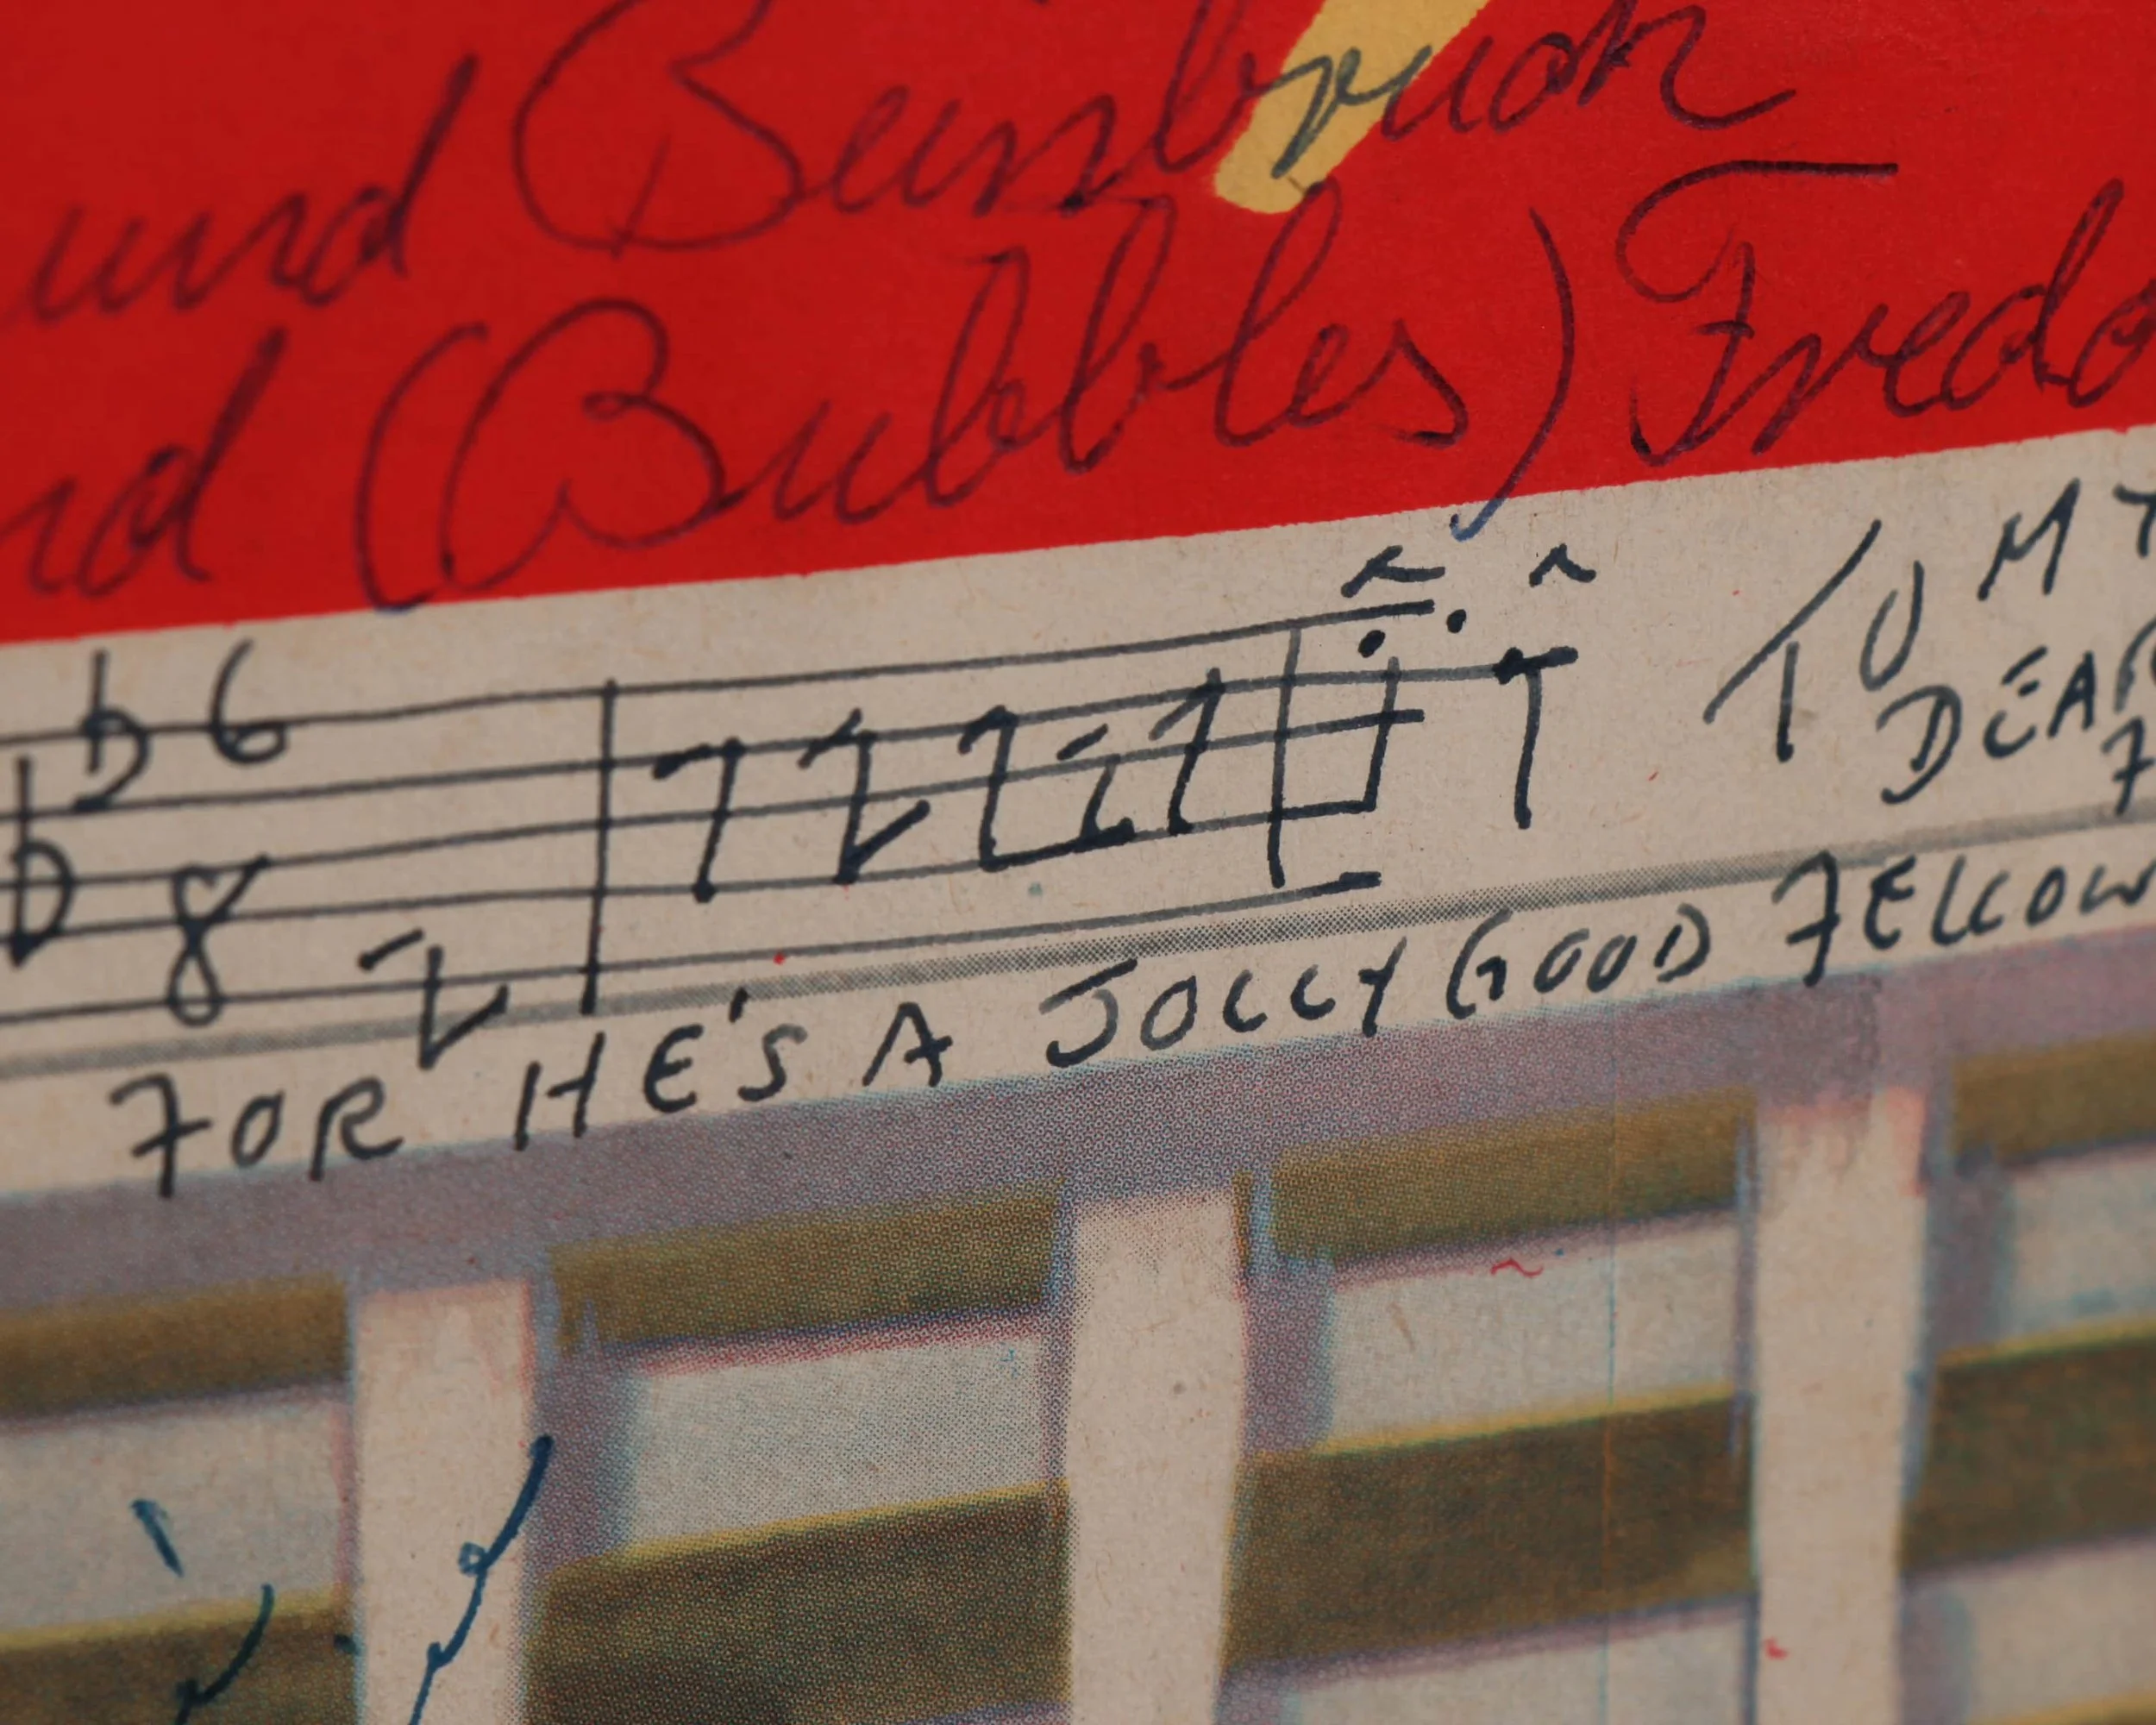 und Beinbruch
nd (Bubbles) Fredd
TO MY
DEAR
6
8
FOR HE'S A JOLLY GOOD FELLOW